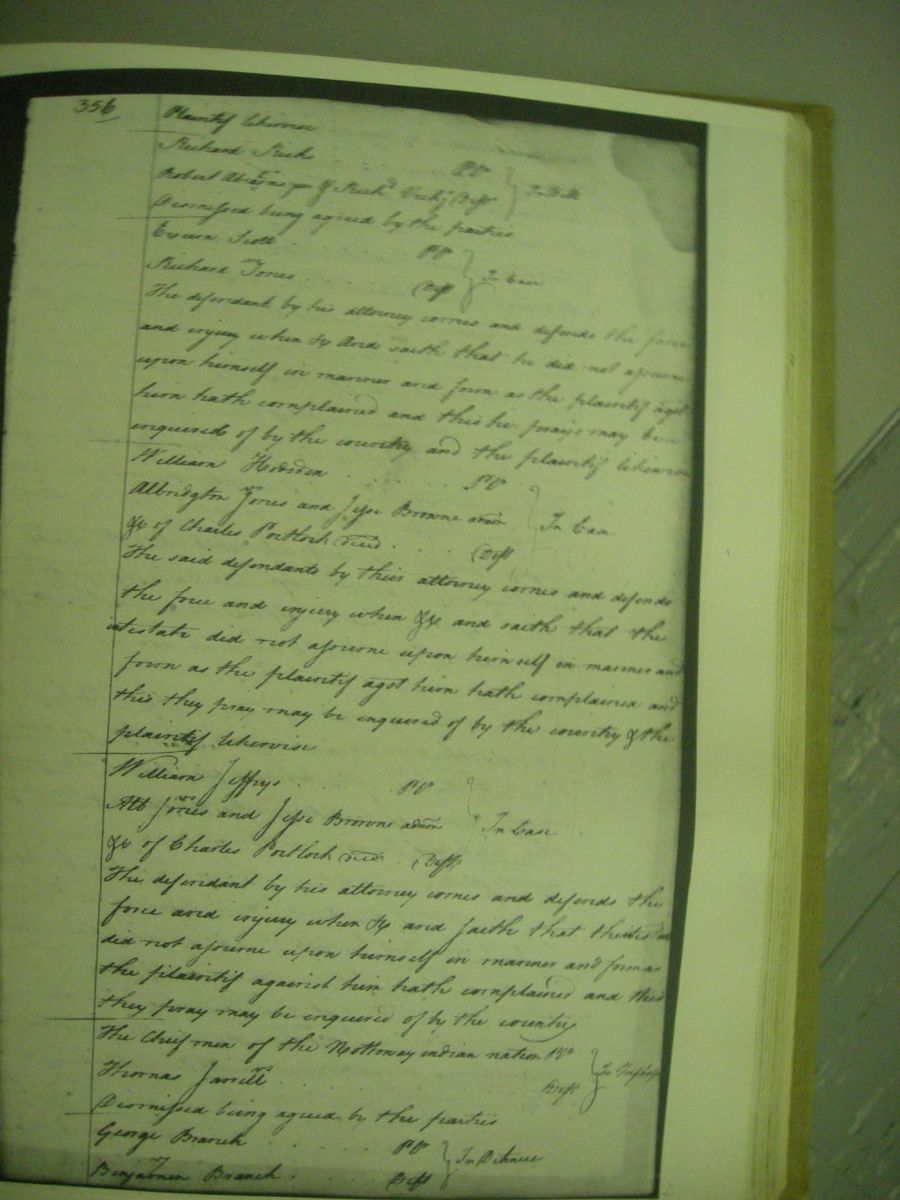 356
Plaintif likewise
Richard Ricks Plt
Robert Abrams &
Dismissed being agreed by the parties
Exum Scott Plt
In Case
Richard Jones Deft
The defendant by his attorney comes and defends the force
and injury when &c And saith that he did not assume
upon himself in manner and form as the plaintif agst
him hath complained and this he prays may be
enquired of by the country and the plaintif likewise
William Hodsden Plt
Albridgton Jones and Jesse Browne admrs In Case
&c of Charles Portlock decd Deft
The said defendants by their attorney comes and defends
the force and injury when &c and saith that the
intestate did not assume upon himself in manner and
form as the plaintif agst him hath complained and
this they pray may be enquired of by the country & the
plaintif likewise
William Jeffrys Plt
Alb Jones and Jesse Browne admrs In Case
&c of Charles Portlock decd Defts
The defendant by his attorney comes and defends the
force and injury when &c and saith that
did not assume upon himself in manner and form as
the plaintif against him hath complained and this
they pray may be enquired of by the country
The Chief men of the Nottoway indian nation Plts
In Trespass
Thomas Jarrell Deft
Dismissed being agreed by the parties
George Branch Plt
In Detinue
Benjamin Branch Deft